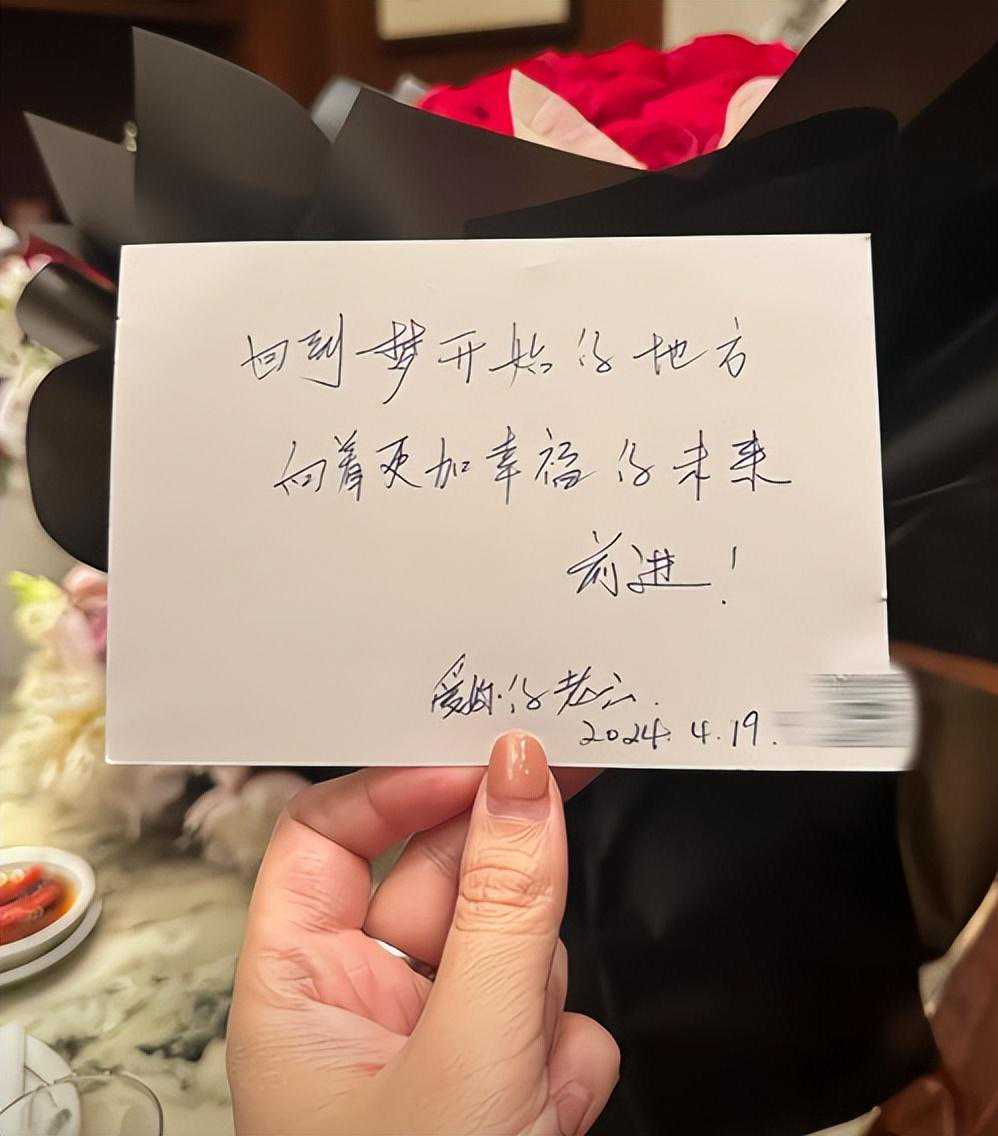 回到梦开始的地方
向着更加幸福的未来
前进!
爱你的老公.
2024.4.19.